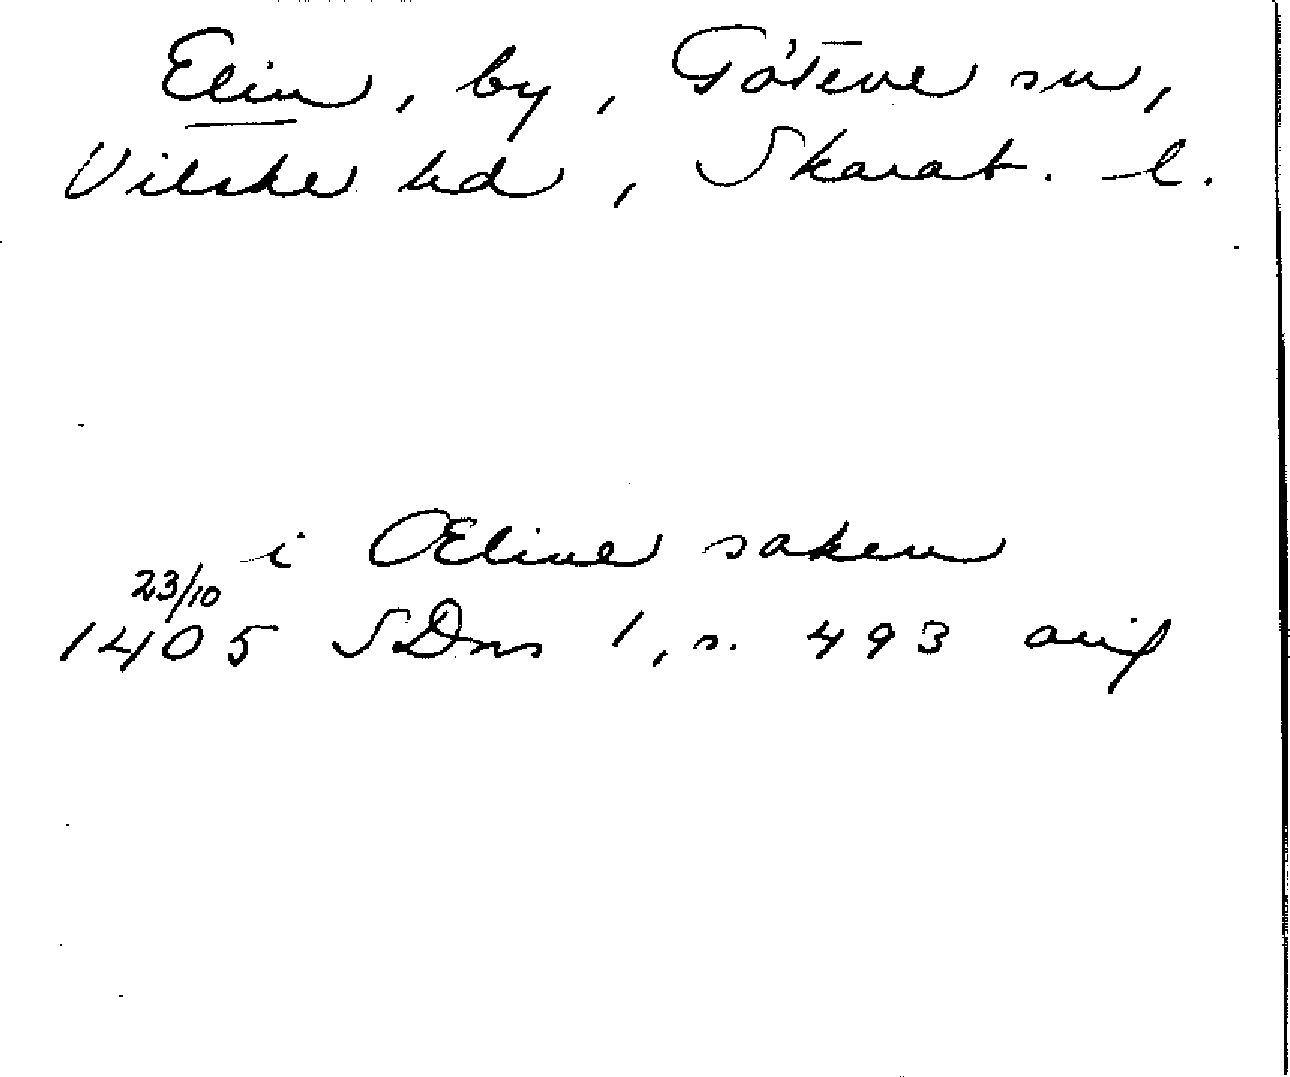 Elin, by, Göteve sn,
Vilske hd, Skarab. l.
i Œline soken
23/10
1405 SDns 1, s. 493 avskr